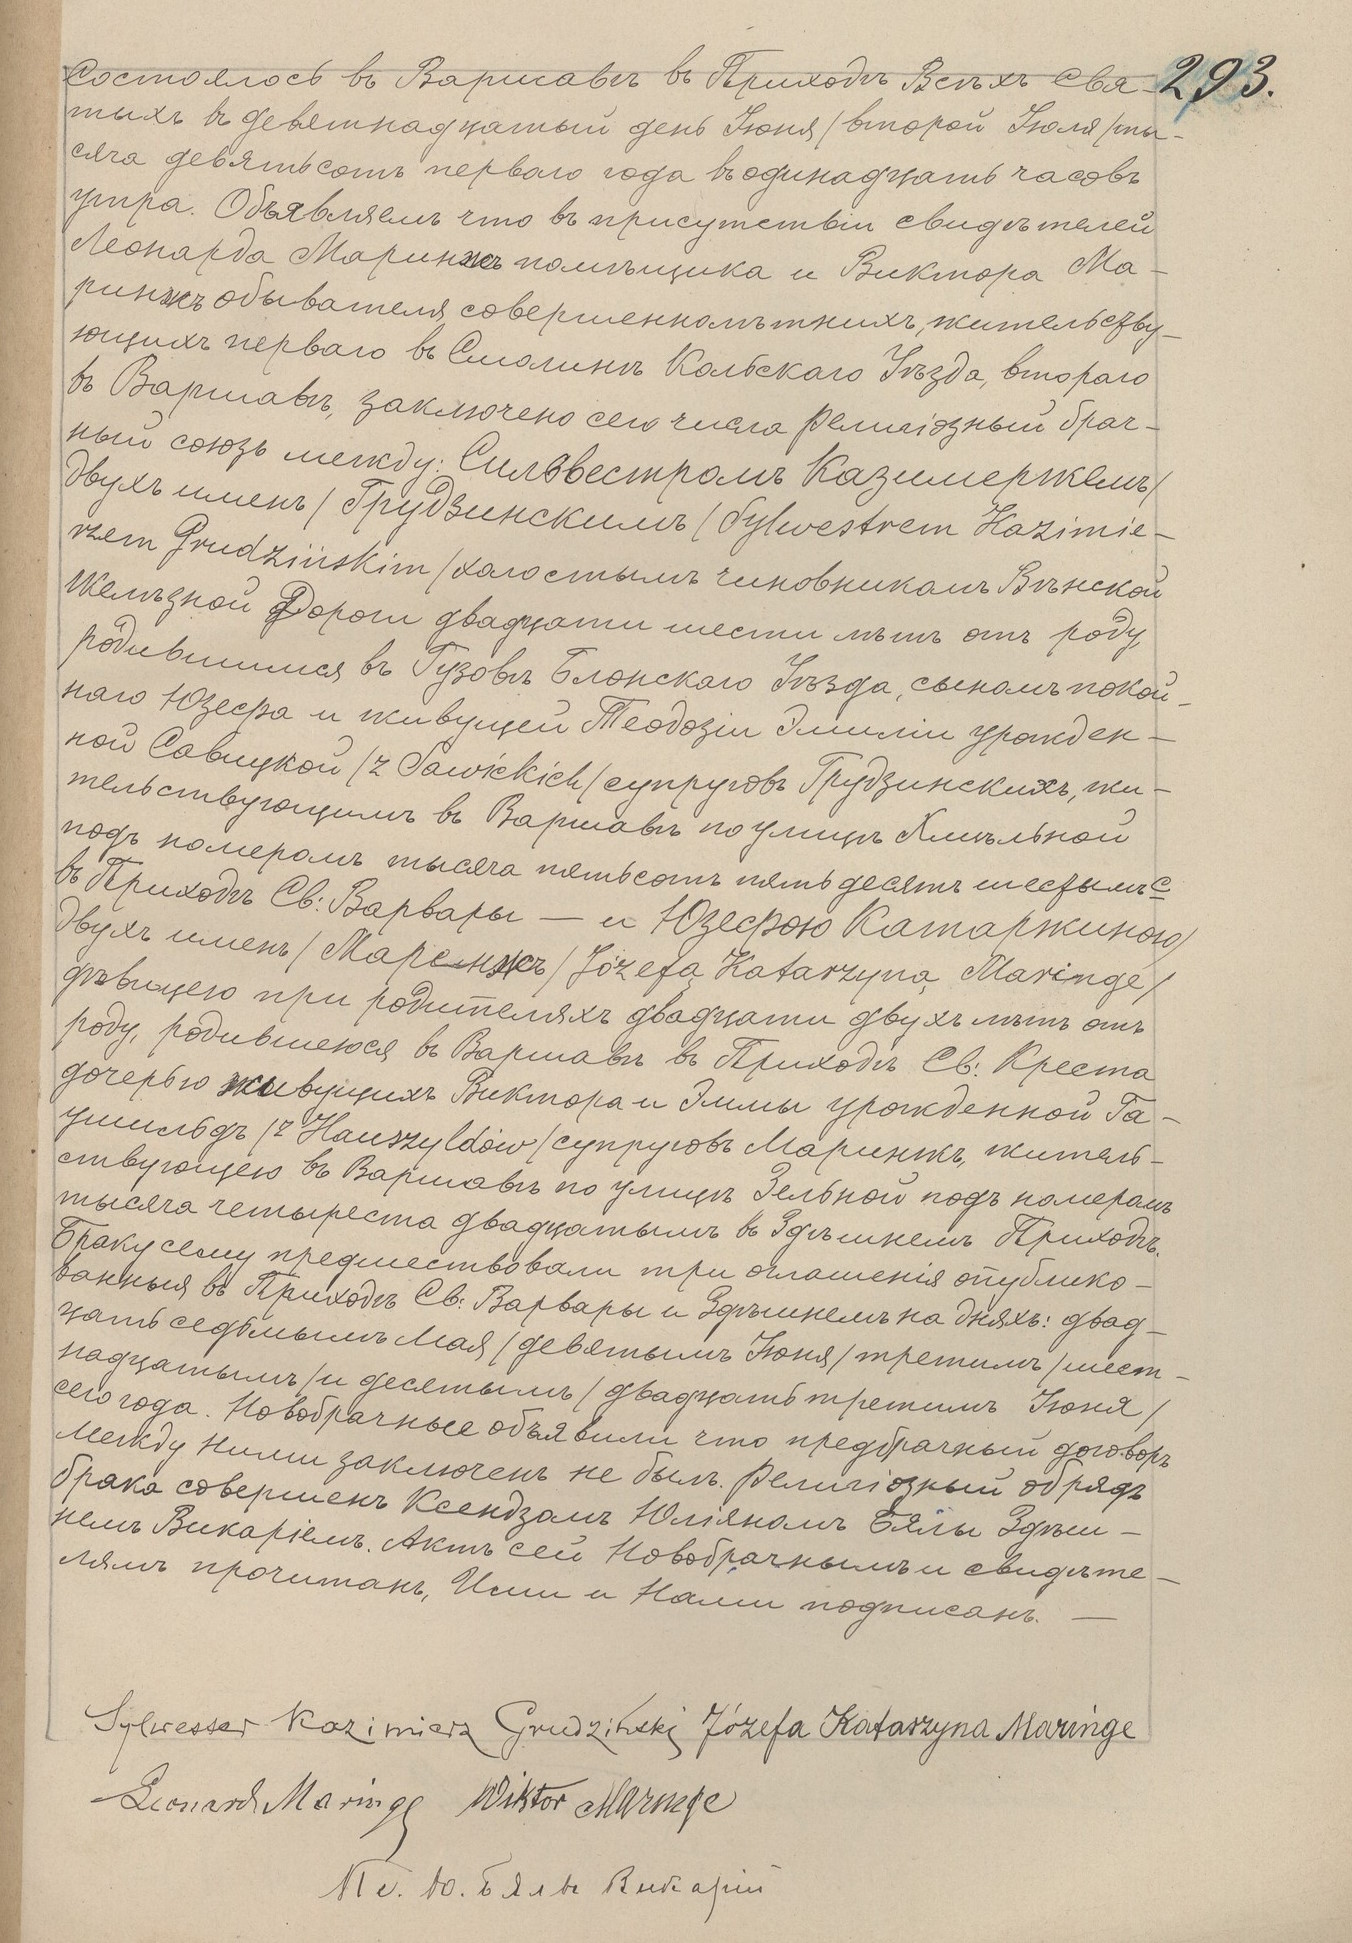 Состоялось въ Варшавѣ въ Приходѣ Всѣхъ Свя- 293.
тыхъ въ девятнадцатый день Іюня /второй Іюля/ ты-
сяча девятьсотъ перваго года въ одинадцать часовъ
утра. Объявляемъ что въ присутствіи свидѣтелей
Леонарда Маринжъ помѣщика и Виктора Ма-
ринжъ обывателя совершеннолѣтнихъ, жительству-
ющихъ перваго въ Смолинѣ Кольскаго Уѣзда, втораго
въ Варшавѣ, заключено сего числа религіозный брач-
ный союзъ между: Сильвестромъ Казимержемъ /
двухъ именъ / Грудзинскимъ / Sylwestrem Kazimie-
rzem Grudzińskim / холостымъ чиновникомъ Вѣнской
Желѣзной Дороги двадцати шести лѣтъ отъ роду,
родившимся въ Гузовѣ Блонскаго Уѣзда, сыномъ покой-
наго Юзефа и живущей Теодозіи Эмиліи урожден-
ной Савицкой / z Sawickich / супруговъ Грудзинскихъ, жи-
тельствующимъ въ Варшавѣ по улицѣ Хмѣльной
подъ номеромъ тысяча пятьсотъ пятьдесятъ шестымъ с
въ Приходѣ Св: Варвары — и Юзефою Катаржиною /
двухъ именъ / Маренжъ / Józefą Katarzyną Maringe /
дѣвицею при родителяхъ двадцати двухъ лѣтъ отъ
роду, родившеюся въ Варшавѣ въ Приходѣ Св: Креста
дочерью живущихъ Виктора и Эммы урожденной Га-
ушильдъ / z Hauszyldów / супруговъ Маринжъ, житель-
ствующею въ Варшавѣ по улицѣ Зельной подъ номеромъ
тысяча четыреста двадцатымъ въ Здѣшнемъ Приходѣ.
Браку сему предшествовали три оглашенія опублико-
ванныя въ Приходѣ Св: Варвары и Здѣшнемъ на дняхъ: двад-
цать седьмымъ Мая / девятымъ Іюня / третимъ / шест-
надцатымъ / и десятымъ / двадцать третимъ Іюня /
сего года. Новобрачные объявили что предбрачный договоръ
между ними заключенъ не былъ. Религіозный обрядъ
брака совершенъ Ксендзомъ Юліяномъ Бялы Здѣш-
немъ Викаріемъ. Актъ сей Новобрачнымъ и свидѣте-
лямъ прочитанъ, Ими и Нами подписанъ. —
Sylwester Kazimierz Grudziński Józefa Katarzyna Maringe
Leonard Maringe Wiktor Maringe
Ю. Бялы Викарій